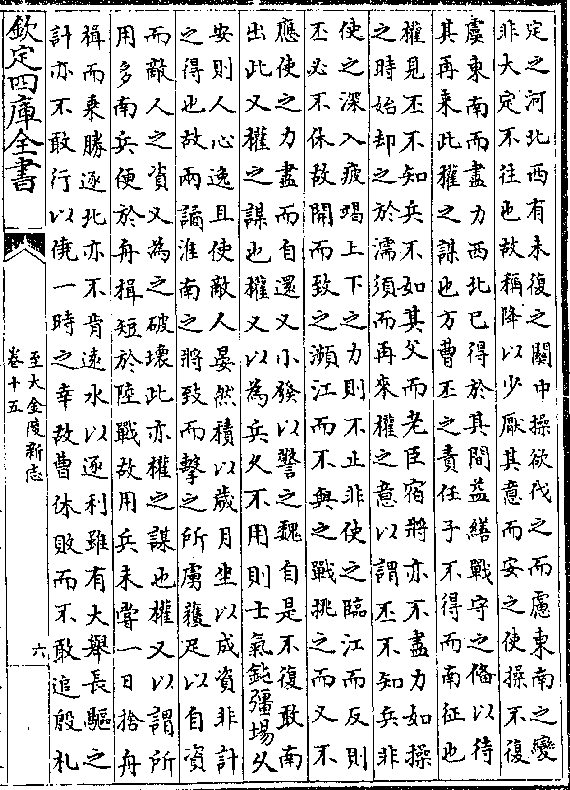 定之河北西有未復之關中操欲伐之而慮東南之變
非大定不往也故稱降以少厭其意而安之使操不復
虞東南而盡力西北已得於其間益繕戰守之偹以待
其再来此權之謀也方曹丕之責任子不得而南征也
權見丕不知兵不如其父而老臣宿將亦不盡力如操
之時始却之於濡須而再來權之意以謂丕不知兵非
使之深入疲竭上下之力則不止非使之臨江而反則
丕必不休故開而致之瀕江而不與之戰挑之而又不
應使之力盡而自還又小發以警之魏自是不復敢南
出此又權之謀也權又以為兵久不用則士氣鈍彊埸久
安則人心逸且使敵人晏然積以歲月坐以成資非計
之得也故兩譎淮南之將致而擊之所虜獲足以自資
而敵人之資又為之破壊此亦權之謀也權又以謂所
用多南兵便於舟楫短於陸戰故用兵未嘗一日捨舟
楫而乘勝逐北亦不肯遠水以逐利雖有大舉長驅之
計亦不敢行以僥一時之幸故曹休敗而不敢追殷札
欽定四庫全書
至大金陵新志
卷十五
六